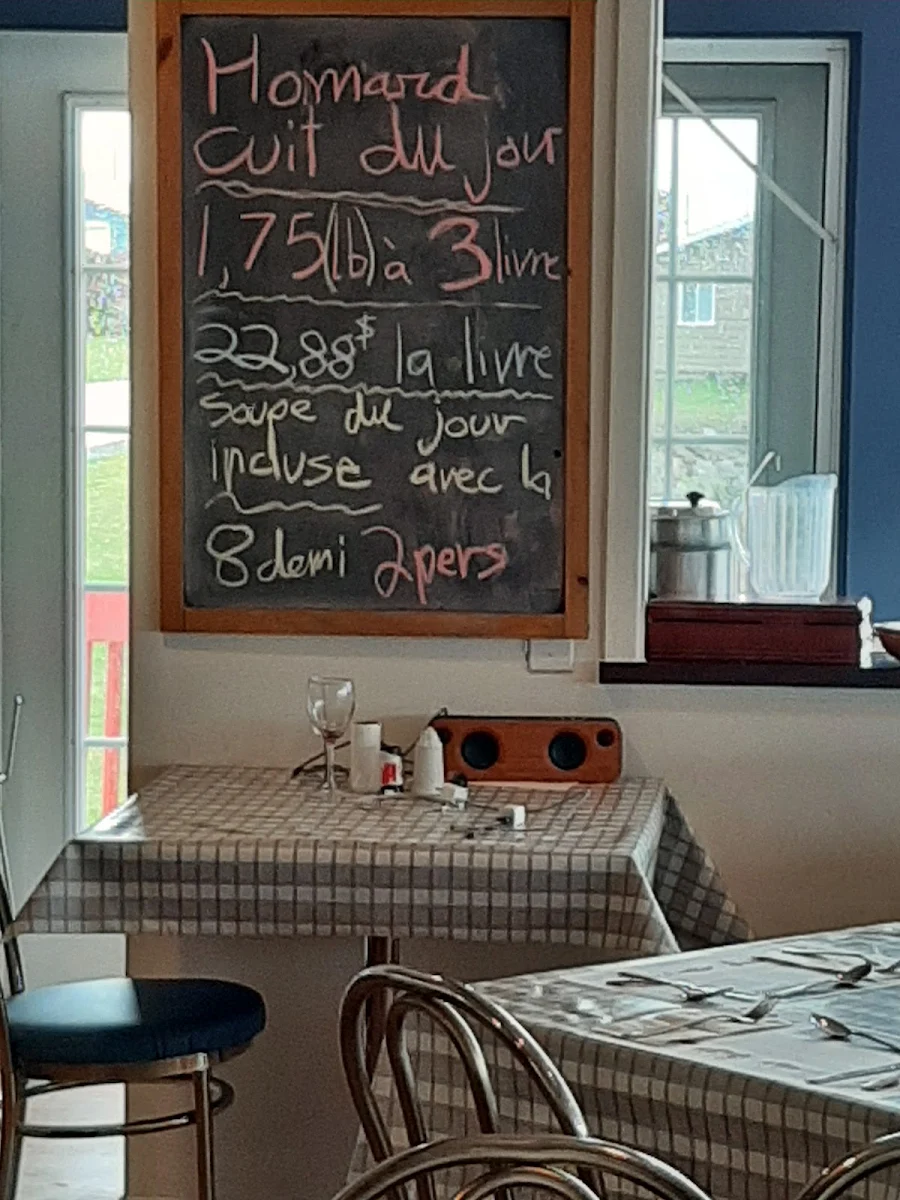 Homard
cuit du jour
1,75(lb) à 3 livre
22,88$ la livre
soupe du jour
incluse avec la
8 demi 2 pers